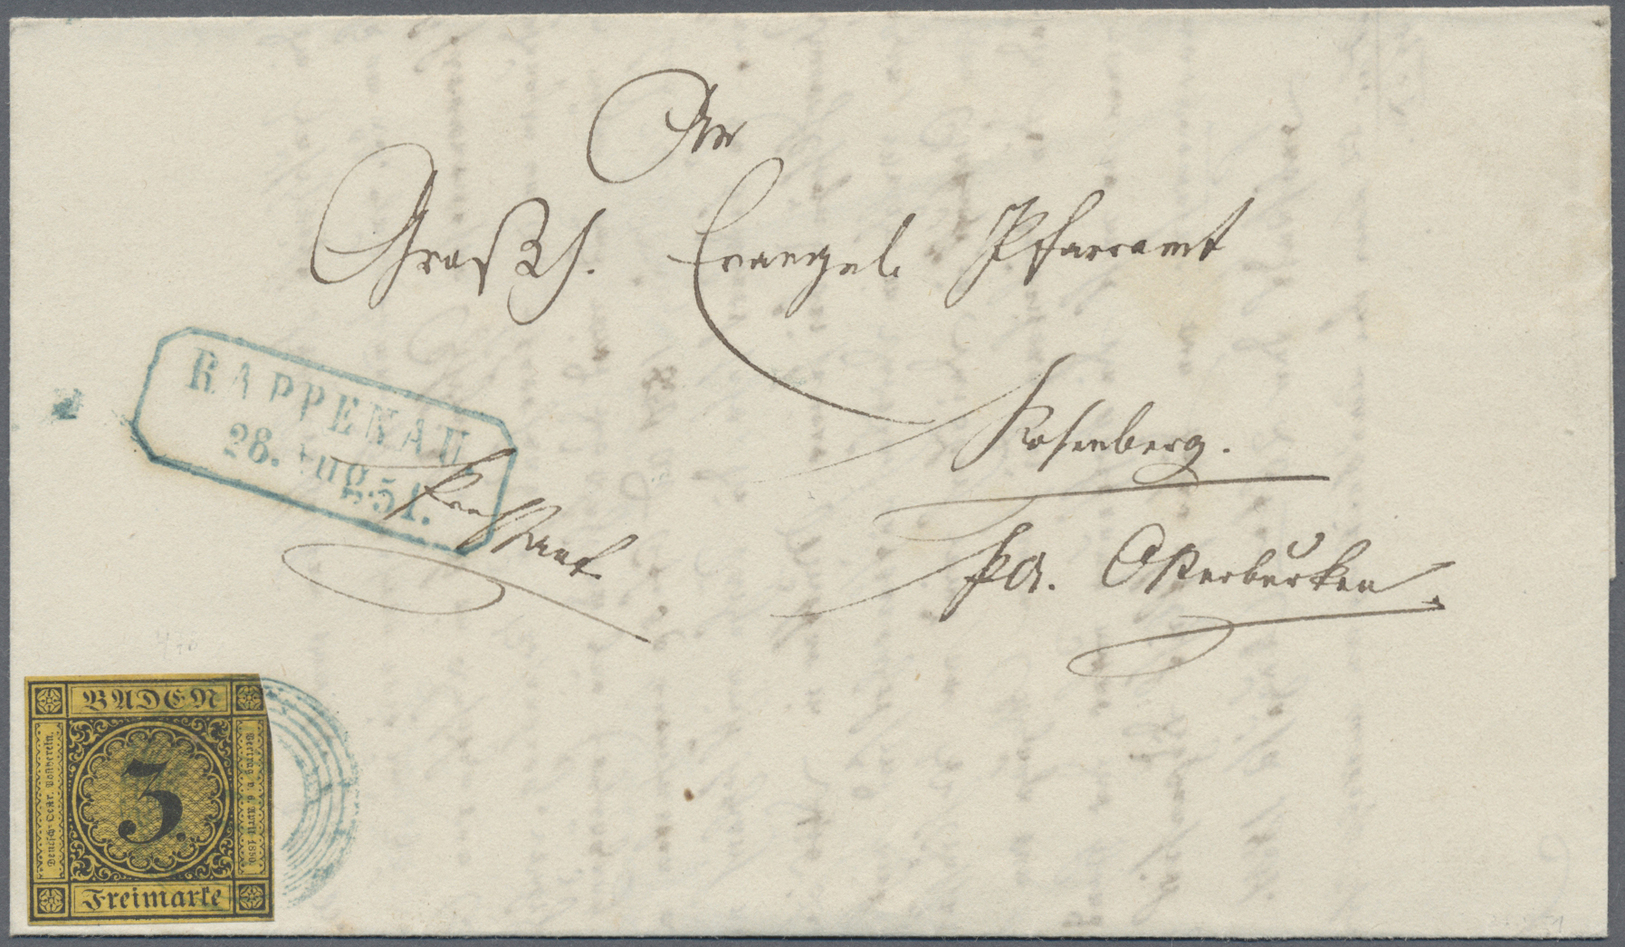 An
Großh. Evangel. Pfarramt
Rosenberg.
PA. Osterburken.
RAPPENAU.
26. Aug. 51.
BADEN
Deutsch-Oestr. Postverein.
3.
Vertrag v. 6 April 1850.
Freimarke